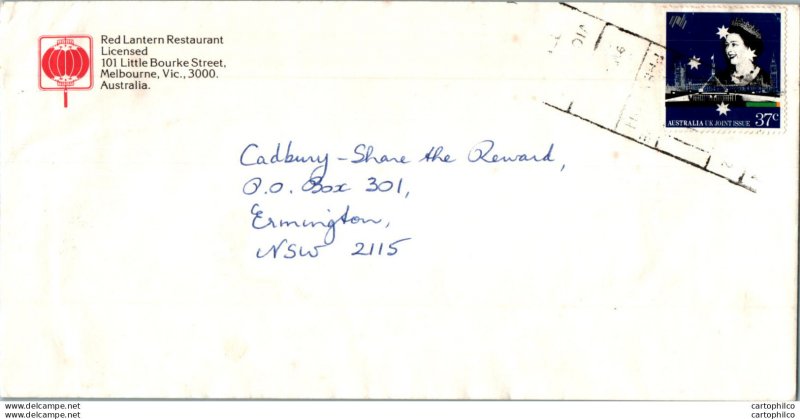 Red Lantern Restaurant
Licensed
101 Little Bourke Street,
Melbourne, Vic., 3000.
Australia.
AUSTRALIA UK JOINT ISSUE 37c
Cadbury - Share the Reward,
P.O. Box 301,
Ermington,
NSW 2115
www.delcampe.net
cartophilco
cartophilco